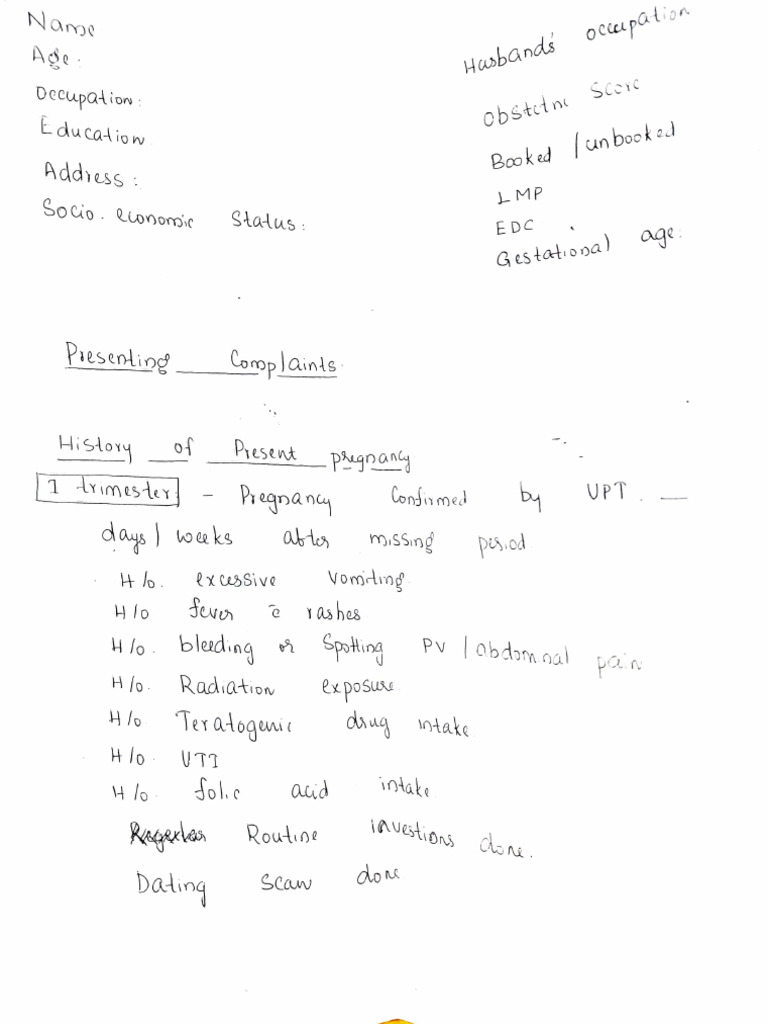 Name
Age:
Occupation:
Education
Address:
Socio. economic Status:
Husband's occupation
Obstetric Score
Booked / unbooked
LMP
EDC
Gestational age:
Presenting Complaints.
History of Present pregnancy
I trimester - Pregnancy Confirmed by UPT. __
days / weeks after missing period
H/o. excessive vomiting
H/o fever c̄ rashes
H/o. bleeding or Spotting PV / abdominal pain
H/o. Radiation exposure
H/o Teratogenic drug intake
H/o UTI
H/o. folic acid intake
Routine investions done.
Dating scan done